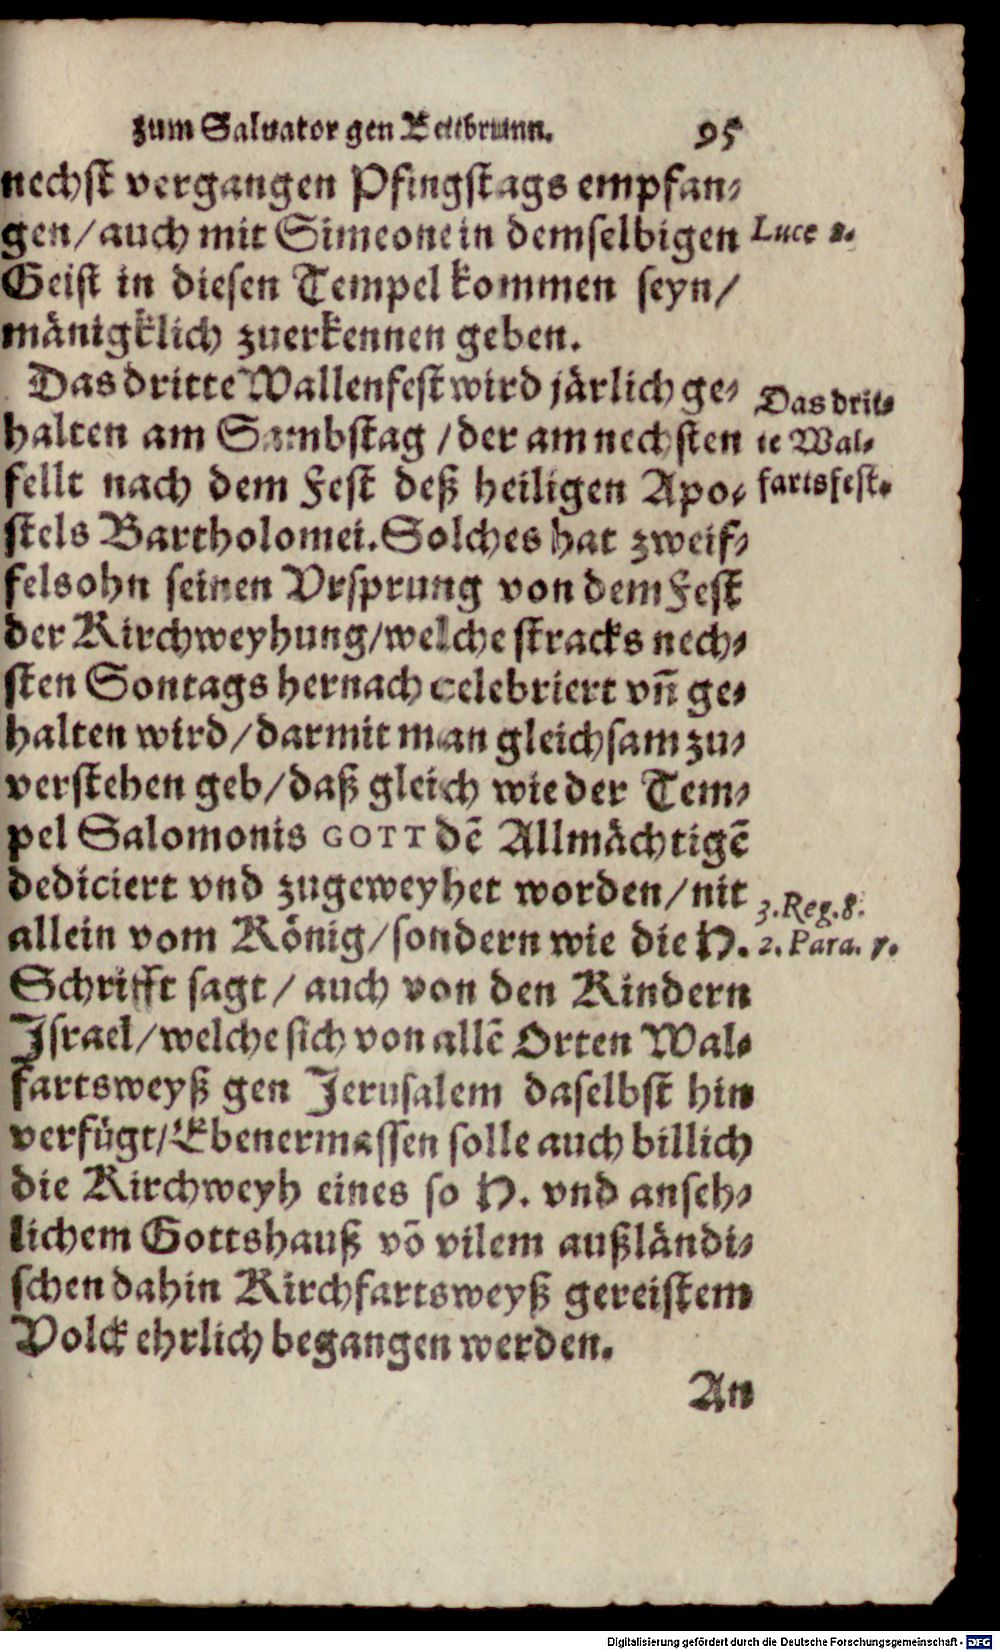 zum Saluator gen Bettbrunn. 95
nechst vergangen Pfingstags empfan⸗
gen/auch mit Simeone in demselbigen
Luce 2.
Geist in diesen Tempel kommen seyn/
mänigklich zuerkennen geben.
Das dritte Wallenfest wird järlich ge⸗
halten am Sambstag/der am nechsten
fellt nach dem Fest deß heiligen Apo⸗
Das drit⸗
te Wal⸗
fartsfest.
stels Bartholomei. Solches hat zweif⸗
felsohn seinen Vrsprung von dem Fest
der Kirchweyhung/welche stracks nech⸗
sten Sontags hernach celebriert vñ ge⸗
halten wird/darmit man gleichsam zu⸗
verstehen geb/daß gleich wie der Tem⸗
pel Salomonis GOTT dē Allmächtigē
dediciert vnd zugeweyhet worden/nit
allein vom König/sondern wie die H.
3. Reg. 8.
2. Para. 7.
Schrifft sagt/auch von den Kindern
Israel/welche sich von allē Orten Wal⸗
fartsweyß gen Jerusalem daselbst hin
verfügt/Ebenermassen solle auch billich
die Kirchweyh eines so H. vnd anseh⸗
lichem Gottshauß vō vilem außländi⸗
schen dahin Kirchfartsweyß gereistem
Volck ehrlich begangen werden.
An
Digitalisierung gefördert durch die Deutsche Forschungsgemeinschaft - DFG